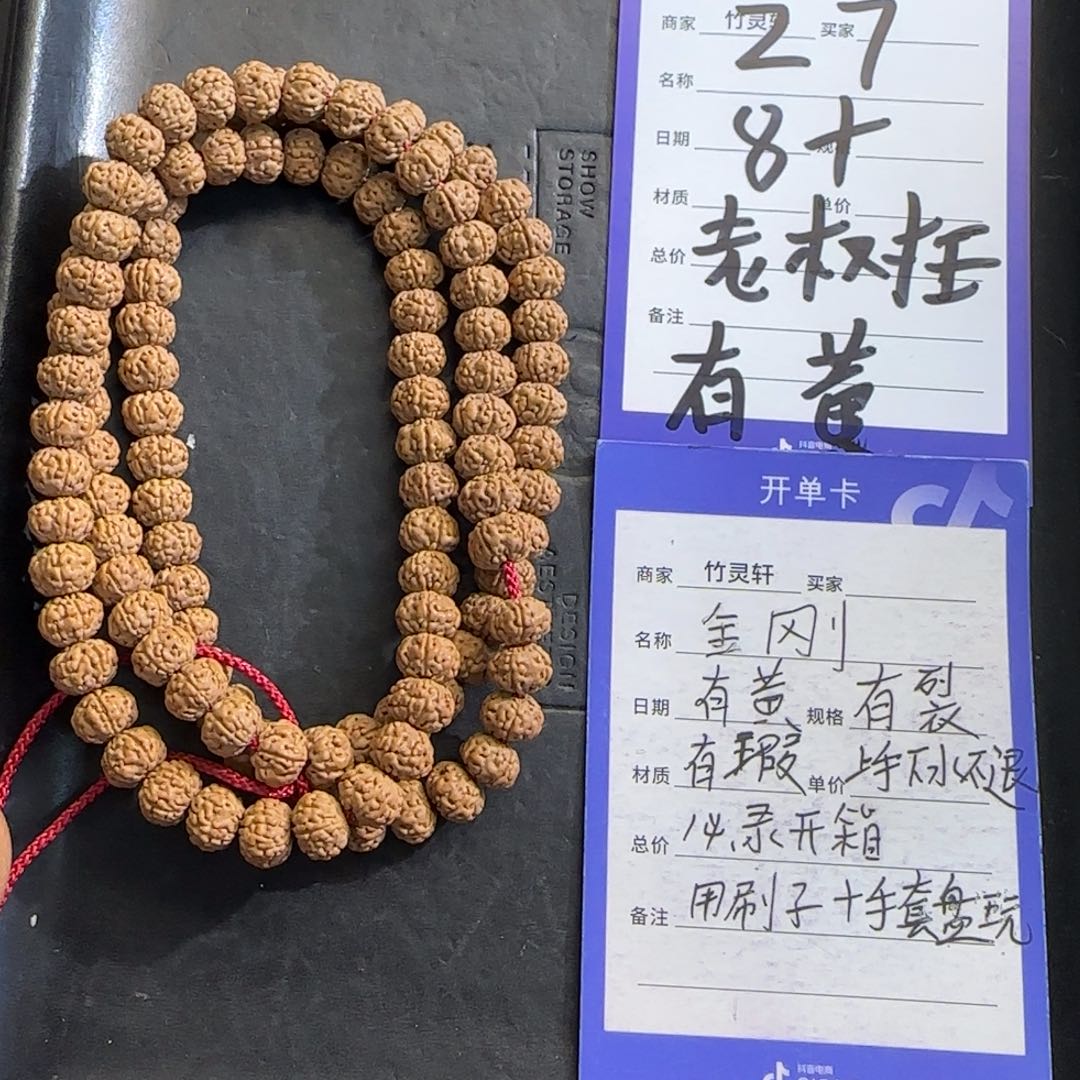 商家 竹灵轩 买家
27
名称
日期 8十 规格
材质 单价
总价 老权任
备注 有黄
抖音电商
开单卡
商家 竹灵轩 买家
名称 金刚
日期 有黄 规格 有裂
材质 有瑕 单价 上手下水不退
总价 必录开箱
备注 用刷子十手套盘玩
抖音电商
SHOW
STORAGE
DESIGN